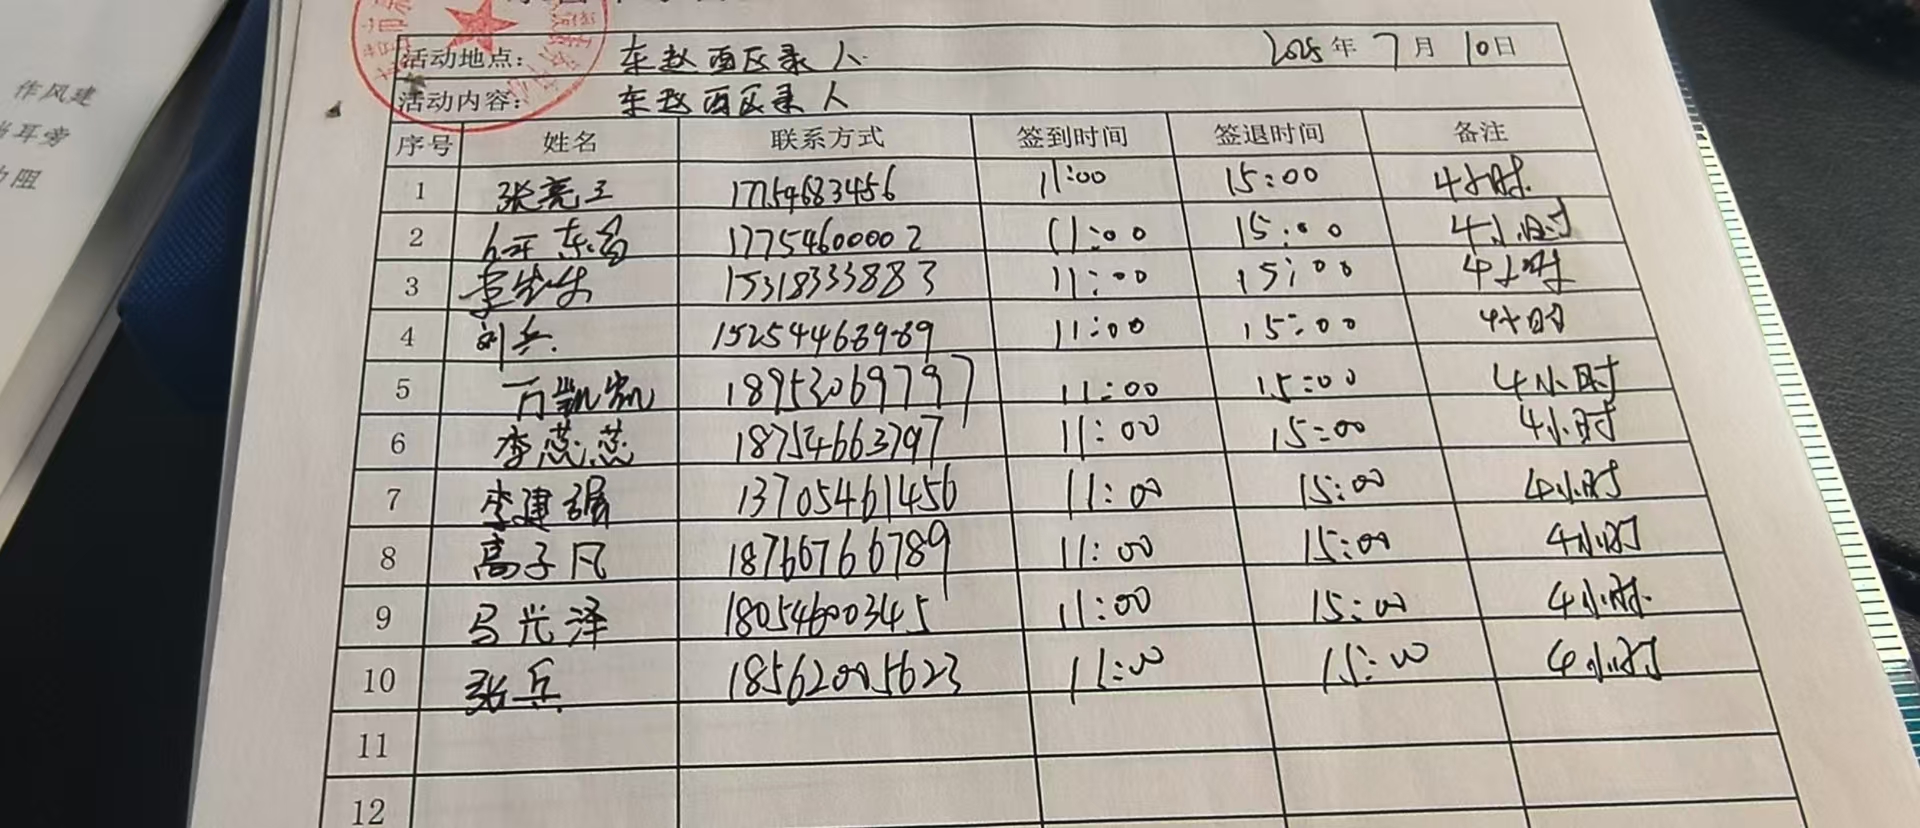 作风建
耳旁
阻
活动地点： 东赵西区录人 2025年7月10日
活动内容： 东赵西区录人
序号 姓名 联系方式 签到时间 签退时间 备注
1 张亮王 17754683456 11:00 15:00 4小时
2 17754600002 11:00 15:00 4小时
3 15318333883 11:00 15:00 4小时
4 刘兵 11:00 15:00 4小时
5 18953069797 11:00 15:00 4小时
6 李蕊蕊 18754663797 11:00 15:00 4小时
7 李建强 13705461456 11:00 15:00 4小时
8 高子凡 18766766789 11:00 15:00 4小时
9 马兴泽 18054600345 11:00 15:00 4小时
10 张兵 18562005623 11:00 15:00 4小时
11
12